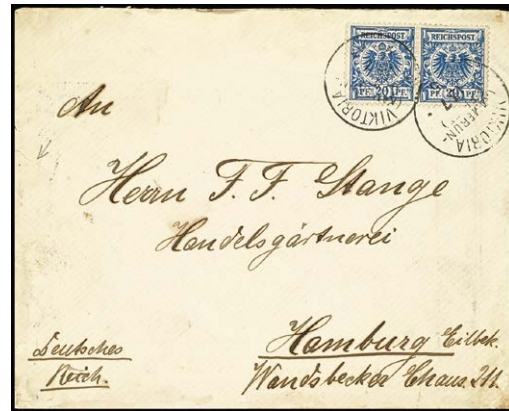 REICHSPOST REICHSPOST
20 PF. 20 PF.
VIKTORIA
VIKTORIA
KAMERUN
An
Herrn F. F. Stange
Handelsgärtnerei
Hamburg Eilbek.
Wandsbecker Chaus. 211.
Deutsches
Reich.